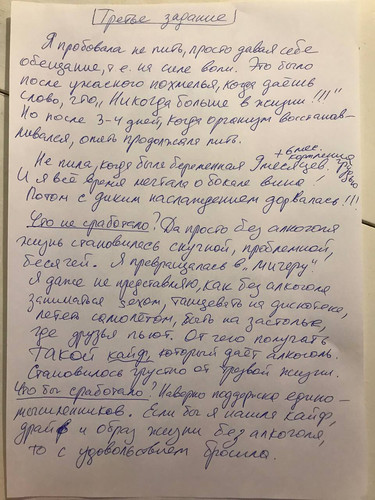 Третье задание
Я пробовала не пить, просто давая себе
обещание, т.е. на силе воли. Это было
после ужасного похмелья, когда даёшь
слово, что „Никогда больше в жизни!!!"
Но после 3-4 дней, когда организм восстанав-
ливался, опять продолжала пить.
Не пила, когда была беременная 9 месяцев. + 6 мес. кормление грудью
И я всё время мечтала о бокале вина!
Потом с диким наслаждением дорвалась!!!
Что не сработало? Да просто без алкоголя
жизнь становилась скучной, проблемной,
бесячей. Я превращалась в „мигеру".
Я даже не представляю, как без алкоголя
заниматься сексом, танцевать на дискотеке,
лететь самолётом, быть на застолье,
где друзья пьют. От чего получать
такой кайф, который даёт алкоголь.
Становилось грустно от трезвой жизни.
Что бы сработало? Наверно поддержка едино-
мышленников. Если бы я нашла кайф,
драйв и образ жизни без алкоголя,
то с удовольствием бросила.